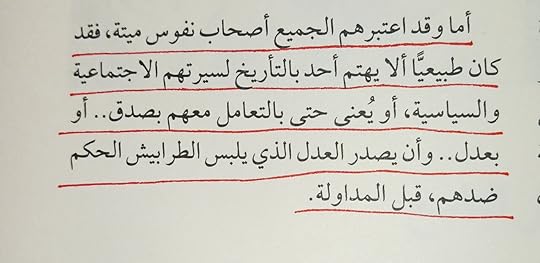 أما وقد اعتبرهم الجميع أصحاب نفوس ميتة، فقد
كان طبيعيًّا ألا يهتم أحد بالتأريخ لسيرتهم الاجتماعية
والسياسية، أو يُعنى حتى بالتعامل معهم بصدق.. أو
بعدل.. وأن يصدر العدل الذي يلبس الطرابيش الحكم
ضدهم، قبل المداولة.